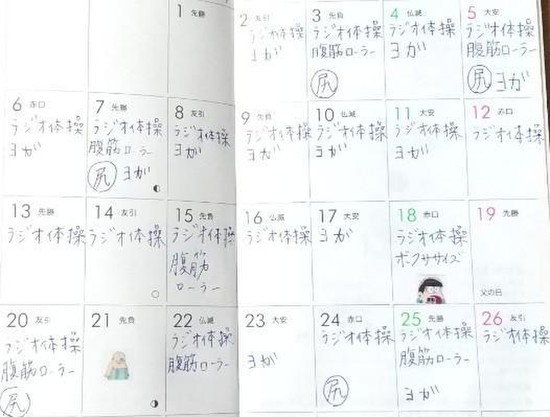 1 先勝
2 友引
ラジオ体操
ヨガ
3 先負
ラジオ体操
腹筋ローラー
尻
4 仏滅
ラジオ体操
ヨガ
5 大安
ラジオ体操
腹筋ローラー
尻 ヨガ
6 赤口
ラジオ体操
ヨガ
7 先勝
ラジオ体操
腹筋ローラー
尻 ヨガ
8 友引
ラジオ体操
ヨガ
9 先負
ラジオ体操
ヨガ
10 仏滅
ラジオ体操
ヨガ
11 大安
ラジオ体操
ヨガ
12 赤口
ラジオ体操
13 先勝
ラジオ体操
14 友引
ラジオ体操
15 先負
ラジオ体操
腹筋
ローラー
16 仏滅
ラジオ体操
17 大安
ヨガ
18 赤口
ラジオ体操
ボクササイズ
19 先勝
父の日
20 友引
ラジオ体操
腹筋ローラー
尻
21 先負
22 仏滅
ラジオ体操
腹筋ローラー
23 大安
ヨガ
24 赤口
ラジオ体操
尻
25 先勝
ラジオ体操
腹筋ローラー
ヨガ
26 友引
ラジオ体操